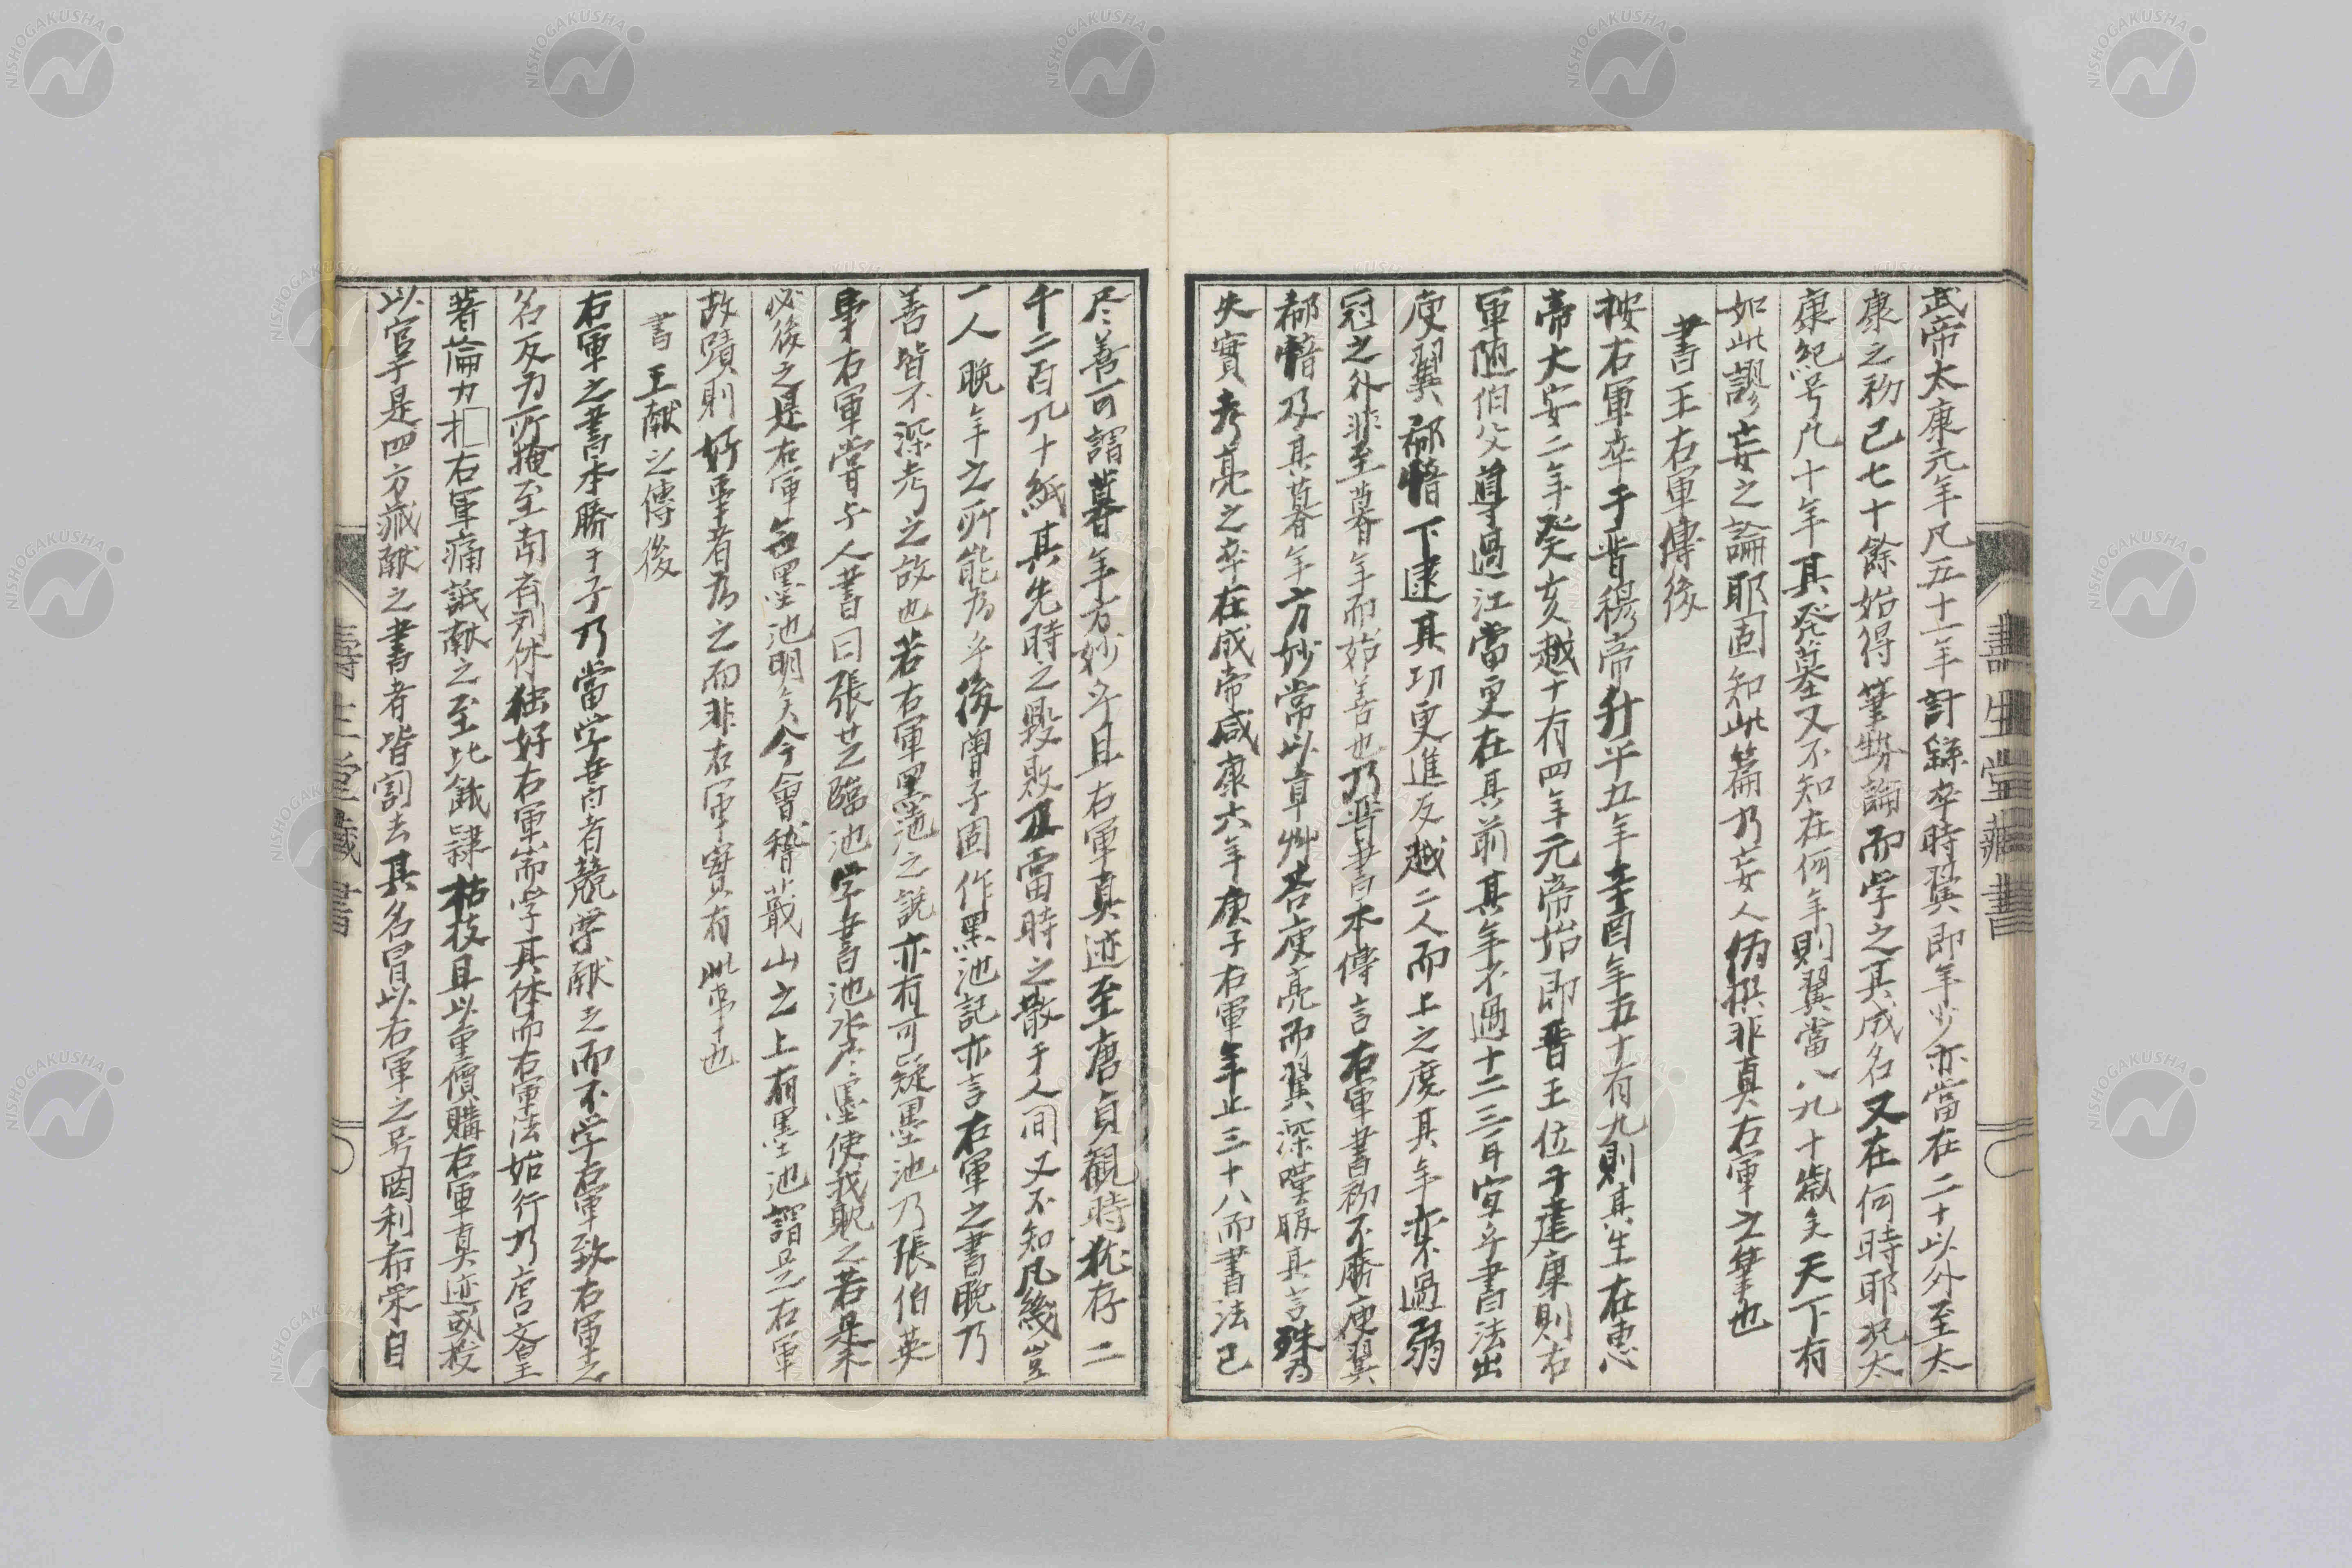 武帝太康元年凡五十一年計繇卒時翼即年少亦當在二十以外至太
康之初已七十餘始得筆勢論而学之其成名又在何時耶况太
康紀号凡十年其発墓又不知在何年則翼當八九十歲矣天下有
如此謬妄之論耶固知此篇乃妄人偽撰非真右軍之筆也
書王右軍傳後
按右軍卒于晋穆帝升平五年辛酉年五十有九則其生在恵
帝太安二年癸亥越十有四年元帝始即晋王位于建康則右
軍随伯父導過江當更在其前其年不過十二三耳安乎書法出
庾翼郗愔下逮其功更進反越二人而上之度其年亦過弱
冠之外非至暮年而始善也乃晋書本傳言右軍書初不勝庾翼
郗愔及其暮年方妙常以章艸荅庾亮而翼深嘆服其言殊為
失實考亮之卒在成帝咸康六年庚子右軍年止三十八而書法已
尽善可謂暮年方妙乎且右軍真迹至唐貞観時犹存二
千二百九十紙其先時之毀敗及當時之散于人间又不知凡幾豈
一人晩年之所能为乎後曽子固作墨池記亦言右軍之書晩乃
善皆不深考之故也若右軍墨池之説亦有可疑墨池乃張伯英
事右軍嘗与人書曰張芝臨池学書池水尽墨使我耽之若是未
必後之是右軍無墨池明矣今會稽蕺山之上有墨池謂是右軍
故蹟則好事者為之而非右軍實有此事也
書王献之傳後
右軍之書本勝于子乃當学書者競学献之而不学右軍致右軍之
名反为所掩至南有列休独好右軍而学其体而右軍法始行乃唐文皇
著論力扎右軍痛詆献之至比餓隷枯枝且以重價購右軍真迹或拔
以官于是四方藏献之書者皆割去其名冒以右軍之号图利希荣自
壽生堂藏書
壽生堂藏書
NISHOGAKUSHA